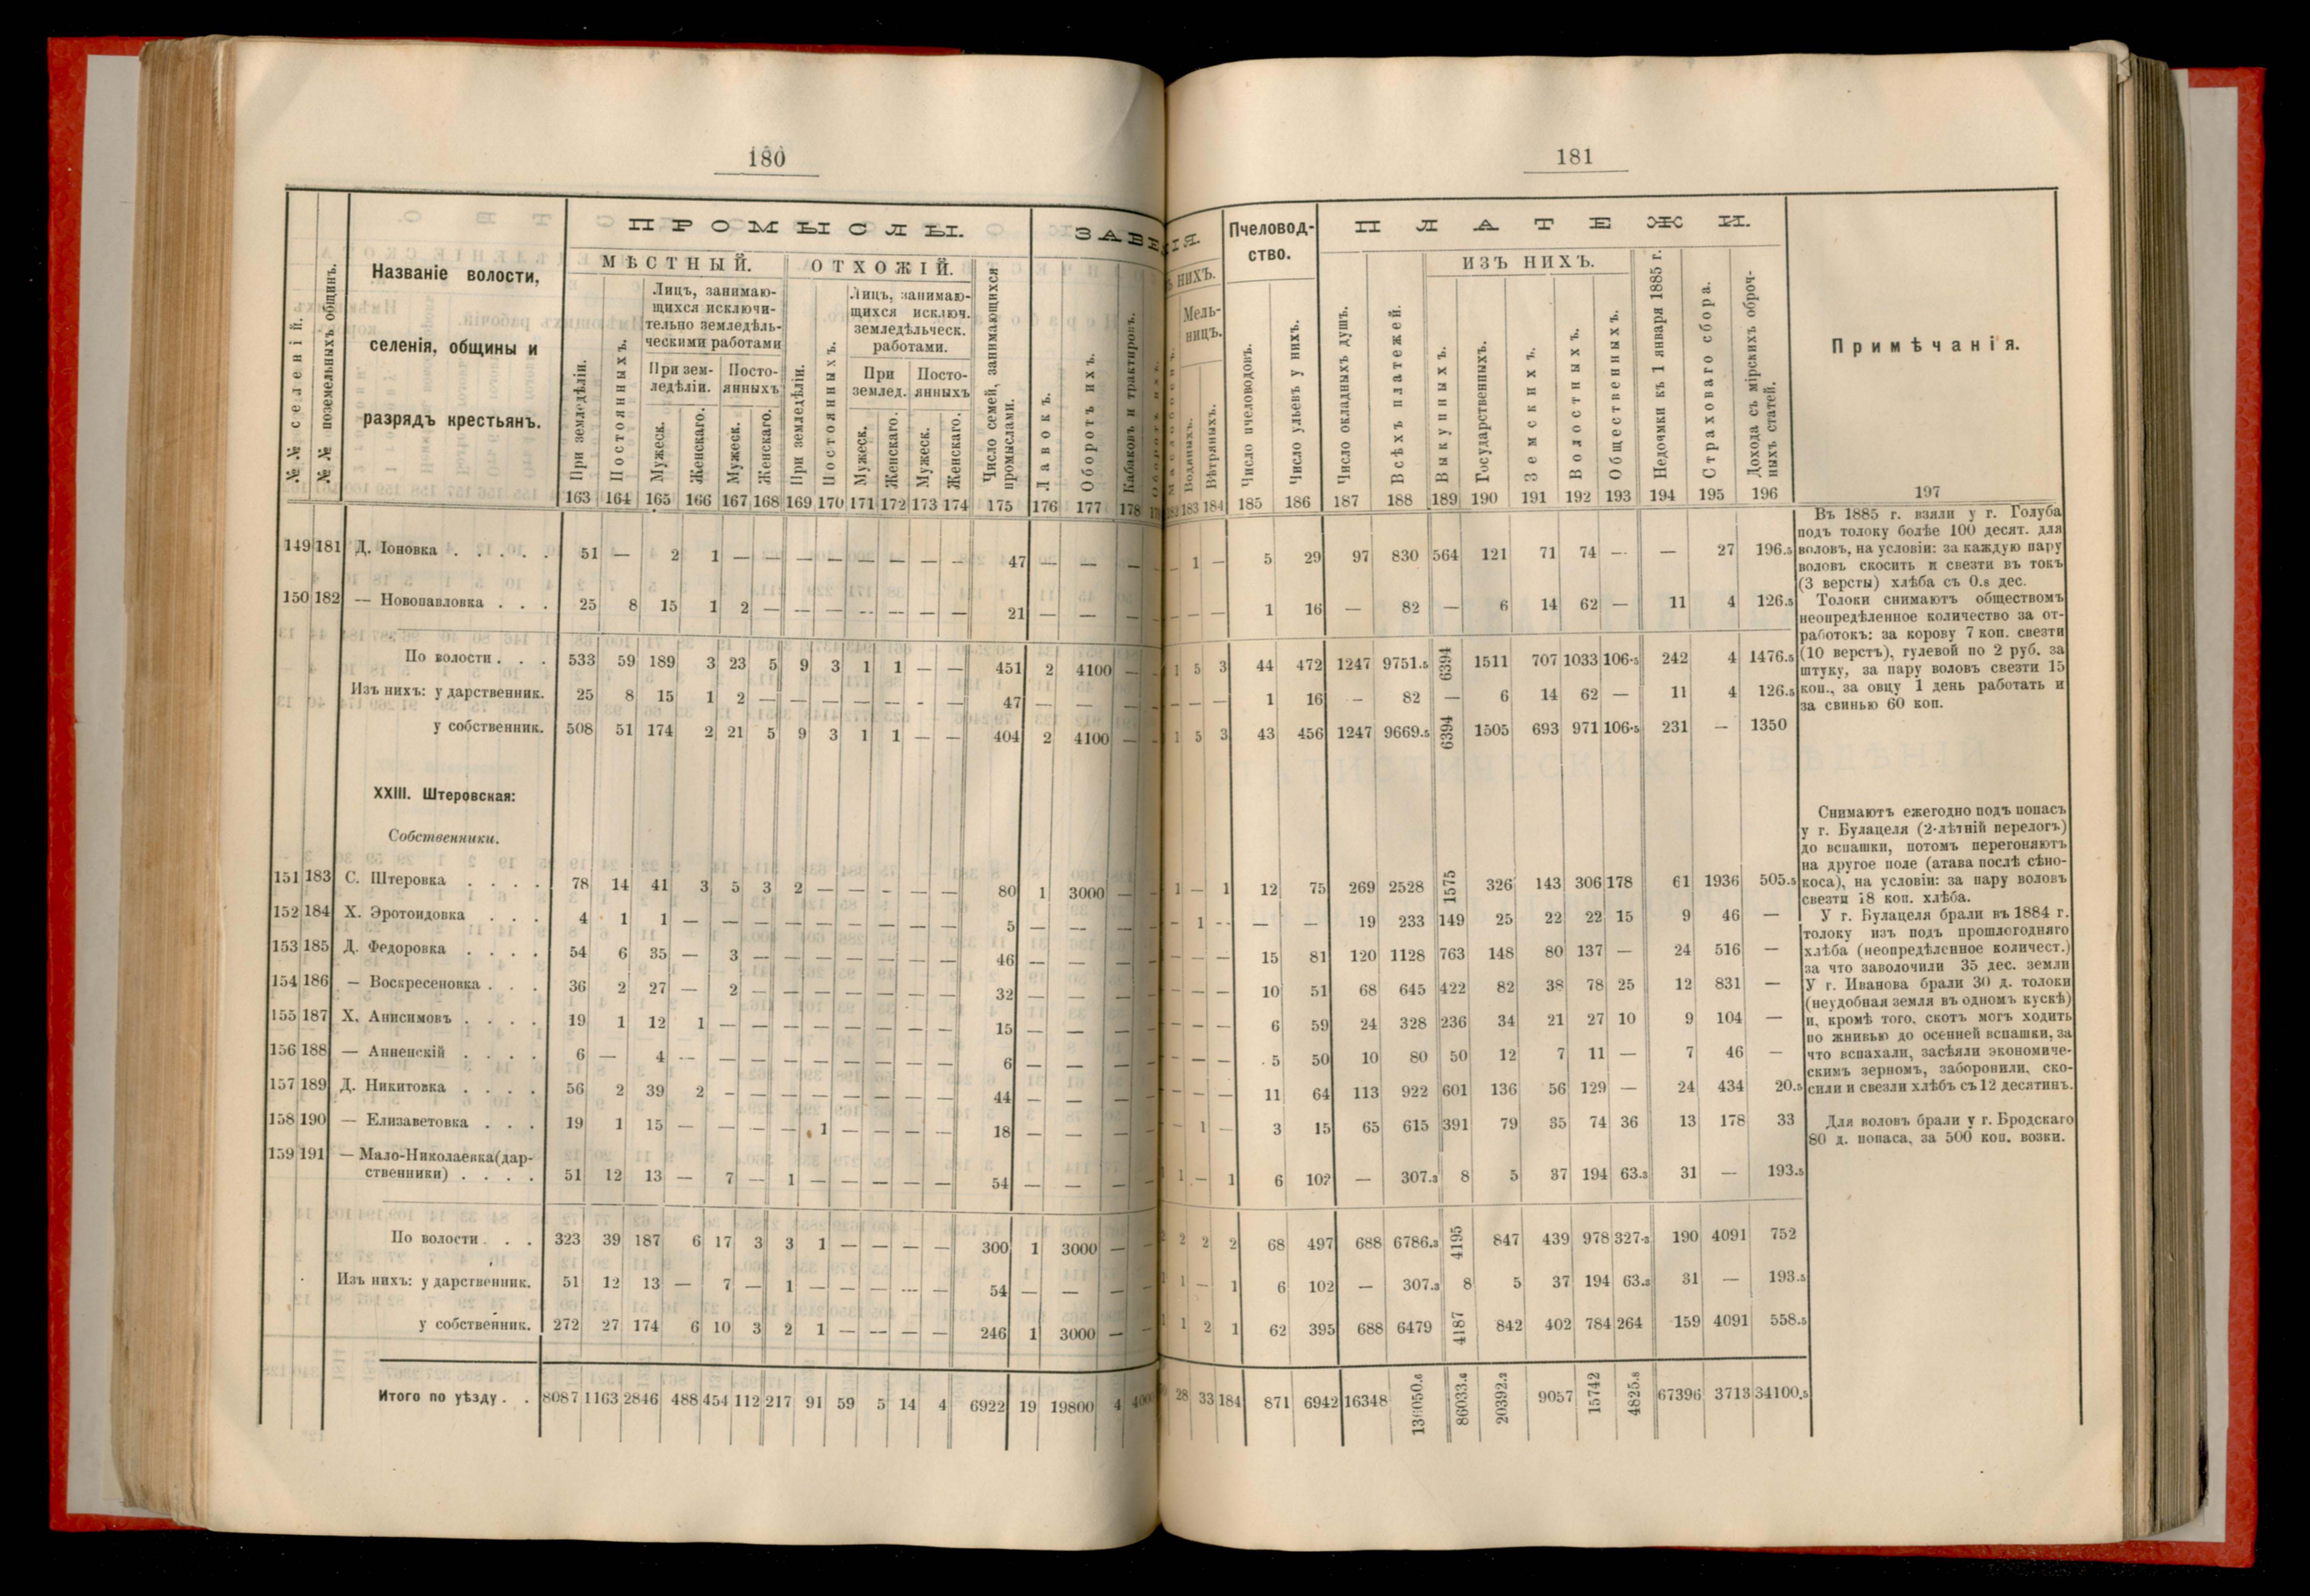 180
№№ селеній.
№№ поземельныхъ общинъ.
Названіе волости,
селенія, общины и
разрядъ крестьянъ.
ПРОМЫСЛЫ.
МѢСТНЫЙ.
ОТХОЖІЙ.
При земледѣліи.
Постоянныхъ.
Лицъ, занимаю-
щихся исключи-
тельно земледѣль-
ческими работами
При зем-
ледѣліи.
Посто-
янныхъ
Мужеск.
Женскаго.
Мужеск.
Женскаго.
При земледѣліи.
Постоянныхъ.
Лицъ, занимаю-
щихся исключ.
земледѣльческ.
работами.
При
землед.
Посто-
янныхъ
Мужеск.
Женскаго.
Мужеск.
Женскаго.
Число семей, занимающихся
промыслами.
ЗАВЕ
Лавокъ.
Оборотъ ихъ.
Кабаковъ и трактировъ.
Оборотъ ихъ.
163 164 165 166 167 168 169 170 171 172 173 174 175 176 177 178
149 181 Д. Іоновка . . . . . 51 — 2 1 — — — — — — — — 47 — — —
150 182 — Новопавловка . . . 25 8 15 1 2 — — — — — — — 21 — — —
По волости . . . 533 59 189 3 23 5 9 3 1 1 — — 451 2 4100 —
Изъ нихъ: у дарственник. 25 8 15 1 2 — — — — — - — 47 — — —
у собственник. 508 51 174 2 21 5 9 3 1 1 — — 404 2 4100 —
XXIII. Штеровская:
Собственники.
151 183 С. Штеровка . . . . 78 14 41 3 5 3 2 — — - — — 80 1 3000 —
152 184 Х. Эротоидовка . . . 4 1 1 — — — — — — — — — 5 — -- —
153 185 Д. Федоровка . . . . 54 6 35 — 3 — — — — — — — 46 — — —
154 186 — Воскресеновка . . . 36 2 27 — 2 — — — — — — — 32 — — —
155 187 Х. Анисимовъ . . . . 19 1 12 1 — — — — — — — — 15 — — —
156 188 — Анненскій . . . . 6 — 4 -- — — — — — — — — 6 — — —
157 189 Д. Никитовка . . . . 56 2 39 2 — — — — — — — — 44 — — —
158 190 — Елизаветовка . . . 19 1 15 — — — — 1 — — — — 18 — — —
159 191 — Мало-Николаевка(дар-
ственники) . . . . 51 12 13 — 7 — 1 — — — — — 54 — — —
По волости . . . 323 39 187 6 17 3 3 1 — — — — 300 1 3000 —
Изъ нихъ: у дарственник. 51 12 13 — 7 — 1 — — — — — 54 — — —
у собственник. 272 27 174 6 10 3 2 1 — -- — — 246 1 3000 —
Итого по уѣзду . . 8087 1163 2846 488 454 112 217 91 59 5 14 4 6922 19 19800 4
181
ІЯ.
НИХЪ.
Мель-
ницъ.
Водяныхъ.
Вѣтряныхъ.
Пчеловод-
ство.
Число пчеловодовъ.
Число ульевъ у нихъ.
ПЛАТЕЖИ.
Число окладныхъ душъ.
Всѣхъ платежей.
ИЗЪ НИХЪ.
Выкупныхъ.
Государственныхъ.
Земскихъ.
Волостныхъ.
Общественныхъ.
Недоимки къ 1 января 1885 г.
Страховаго сбора.
Дохода съ мірскихъ оброч-
ныхъ статей.
Примѣчанія.
183 184 185 186 187 188 189 190 191 192 193 194 195 196 197
— 1 — 5 29 97 830 564 121 71 74 — — 27 196.5
— — — 1 16 — 82 — 6 14 62 — 11 4 126.5
1 5 3 44 472 1247 9751.5 6394 1511 707 1033 106.5 242 4 1476.5
— — — 1 16 — 82 — 6 14 62 — 11 4 126.5
1 5 3 43 456 1247 9669.5 6394 1505 693 971 106.5 231 — 1350
1 — 1 12 75 269 2528 1575 326 143 306 178 61 1936 505.5
— 1 -- — — 19 233 149 25 22 22 15 9 46 —
— — — 15 81 120 1128 763 148 80 137 — 24 516 —
— — — 10 51 68 645 422 82 38 78 25 12 831 —
— — — 6 59 24 328 236 34 21 27 10 9 104 —
— — — 5 50 10 80 50 12 7 11 — 7 46 —
— — — 11 64 113 922 601 136 56 129 — 24 434 20.5
— 1 — 3 15 65 615 391 79 35 74 36 13 178 33
1 — 1 6 102 — 307.3 8 5 37 194 63.3 31 — 193.5
2 2 2 68 497 688 6786.3 4195 847 439 978 327.3 190 4091 752
1 — 1 6 102 — 307.3 8 5 37 194 63.3 31 — 193.5
1 2 1 62 395 688 6479 4187 842 402 784 264 159 4091 558.5
28 33 184 871 6942 16348 86033.6 20392.2 9057 15742 4825.8 67396 3713 34100.5
Въ 1885 г. взяли у г. Голуба
подъ толоку болѣе 100 десят. для
воловъ, на условіи: за каждую пару
воловъ скосить и свезти въ токъ
(3 версты) хлѣба съ 0.8 дес.
Толоки снимаютъ обществомъ
неопредѣленное количество за от-
работокъ: за корову 7 коп. свезти
(10 верстъ), гулевой по 2 руб. за
штуку, за пару воловъ свезти 15
коп., за овцу 1 день работать и
за свинью 60 коп.
Снимаютъ ежегодно подъ попасъ
у г. Булацеля (2-лѣтній перелогъ)
до вспашки, потомъ перегоняютъ
на другое поле (атава послѣ сѣно-
коса), на условіи: за пару воловъ
свезти 18 коп. хлѣба.
У г. Булацеля брали въ 1884 г.
толоку изъ подъ прошлогодняго
хлѣба (неопредѣленное количест.)
за что заволочили 35 дес. земли
У г. Иванова брали 30 д. толоки
(неудобная земля въ одномъ кускѣ)
и, кромѣ того, скотъ могъ ходить
по жнивью до осенней вспашки, за
что вспахали, засѣяли экономиче-
скимъ зерномъ, заборонили, ско-
сили и свезли хлѣбъ съ 12 десятинъ.
Для воловъ брали у г. Бродскаго
80 д. попаса, за 500 коп. возки.